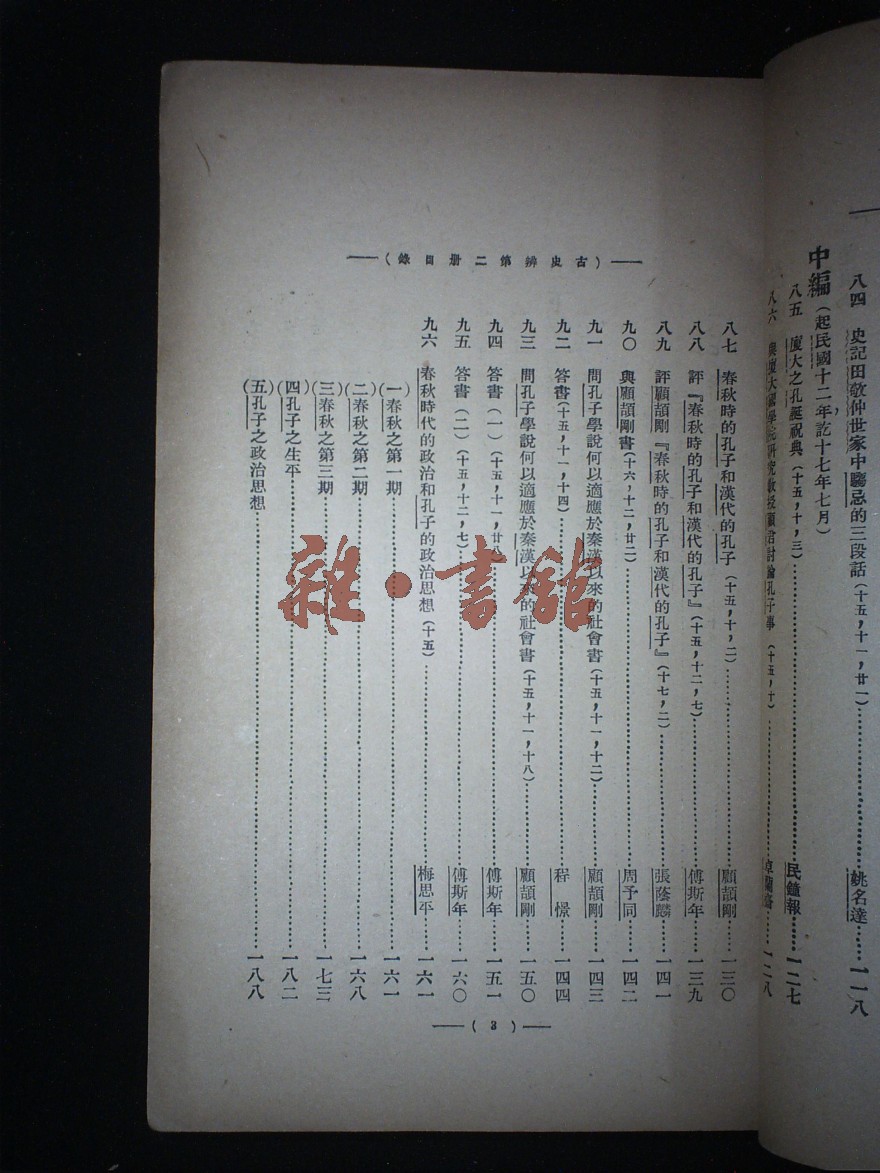 八四　史記田敬仲世家中騶忌的三段話（十五，十一，廿一）……姚名達……一一八
中編（起民國十二年訖十七年七月）
八五　廈大之孔誕祝典（十五，十，三）……民鐘報……一二七
八六　與廈大國學院研究教授顧君討論孔子事（十五，十）……一二八
（古史辨第二册目錄）
八七　春秋時的孔子和漢代的孔子（十五，十，二）……顧頡剛……一三〇
八八　評『春秋時的孔子和漢代的孔子』（十五，十二，七）……傅斯年……一三九
八九　評顧頡剛『春秋時的孔子和漢代的孔子』（十七，二）……張蔭麟……一四一
九〇　與顧頡剛書（十六，十二，廿二）……周予同……一四二
九一　問孔子學說何以適應於秦漢以來的社會書（十五，十一，十二）……顧頡剛……一四三
九二　答書（十五，十一，十四）……程憬……一四四
九三　問孔子學說何以適應於秦漢以來的社會書（十五，十一，十八）……顧頡剛……一五〇
九四　答書（一）（十五，十一，廿八）……傅斯年……一五一
九五　答書（二）（十五，十二，七）……傅斯年……一六〇
九六　春秋時代的政治和孔子的政治思想（十五）……梅思平……一六一
（一）春秋之第一期……一六一
（二）春秋之第二期……一六八
（三）春秋之第三期……一七三
（四）孔子之生平……一八二
（五）孔子之政治思想……一八八
（3）
雜·書館